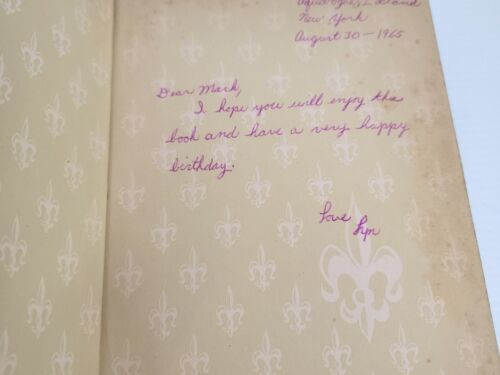 New York
August 30 - 1965
Dear Mark,
I hope you will enjoy the
book and have a very happy
birthday.
Love